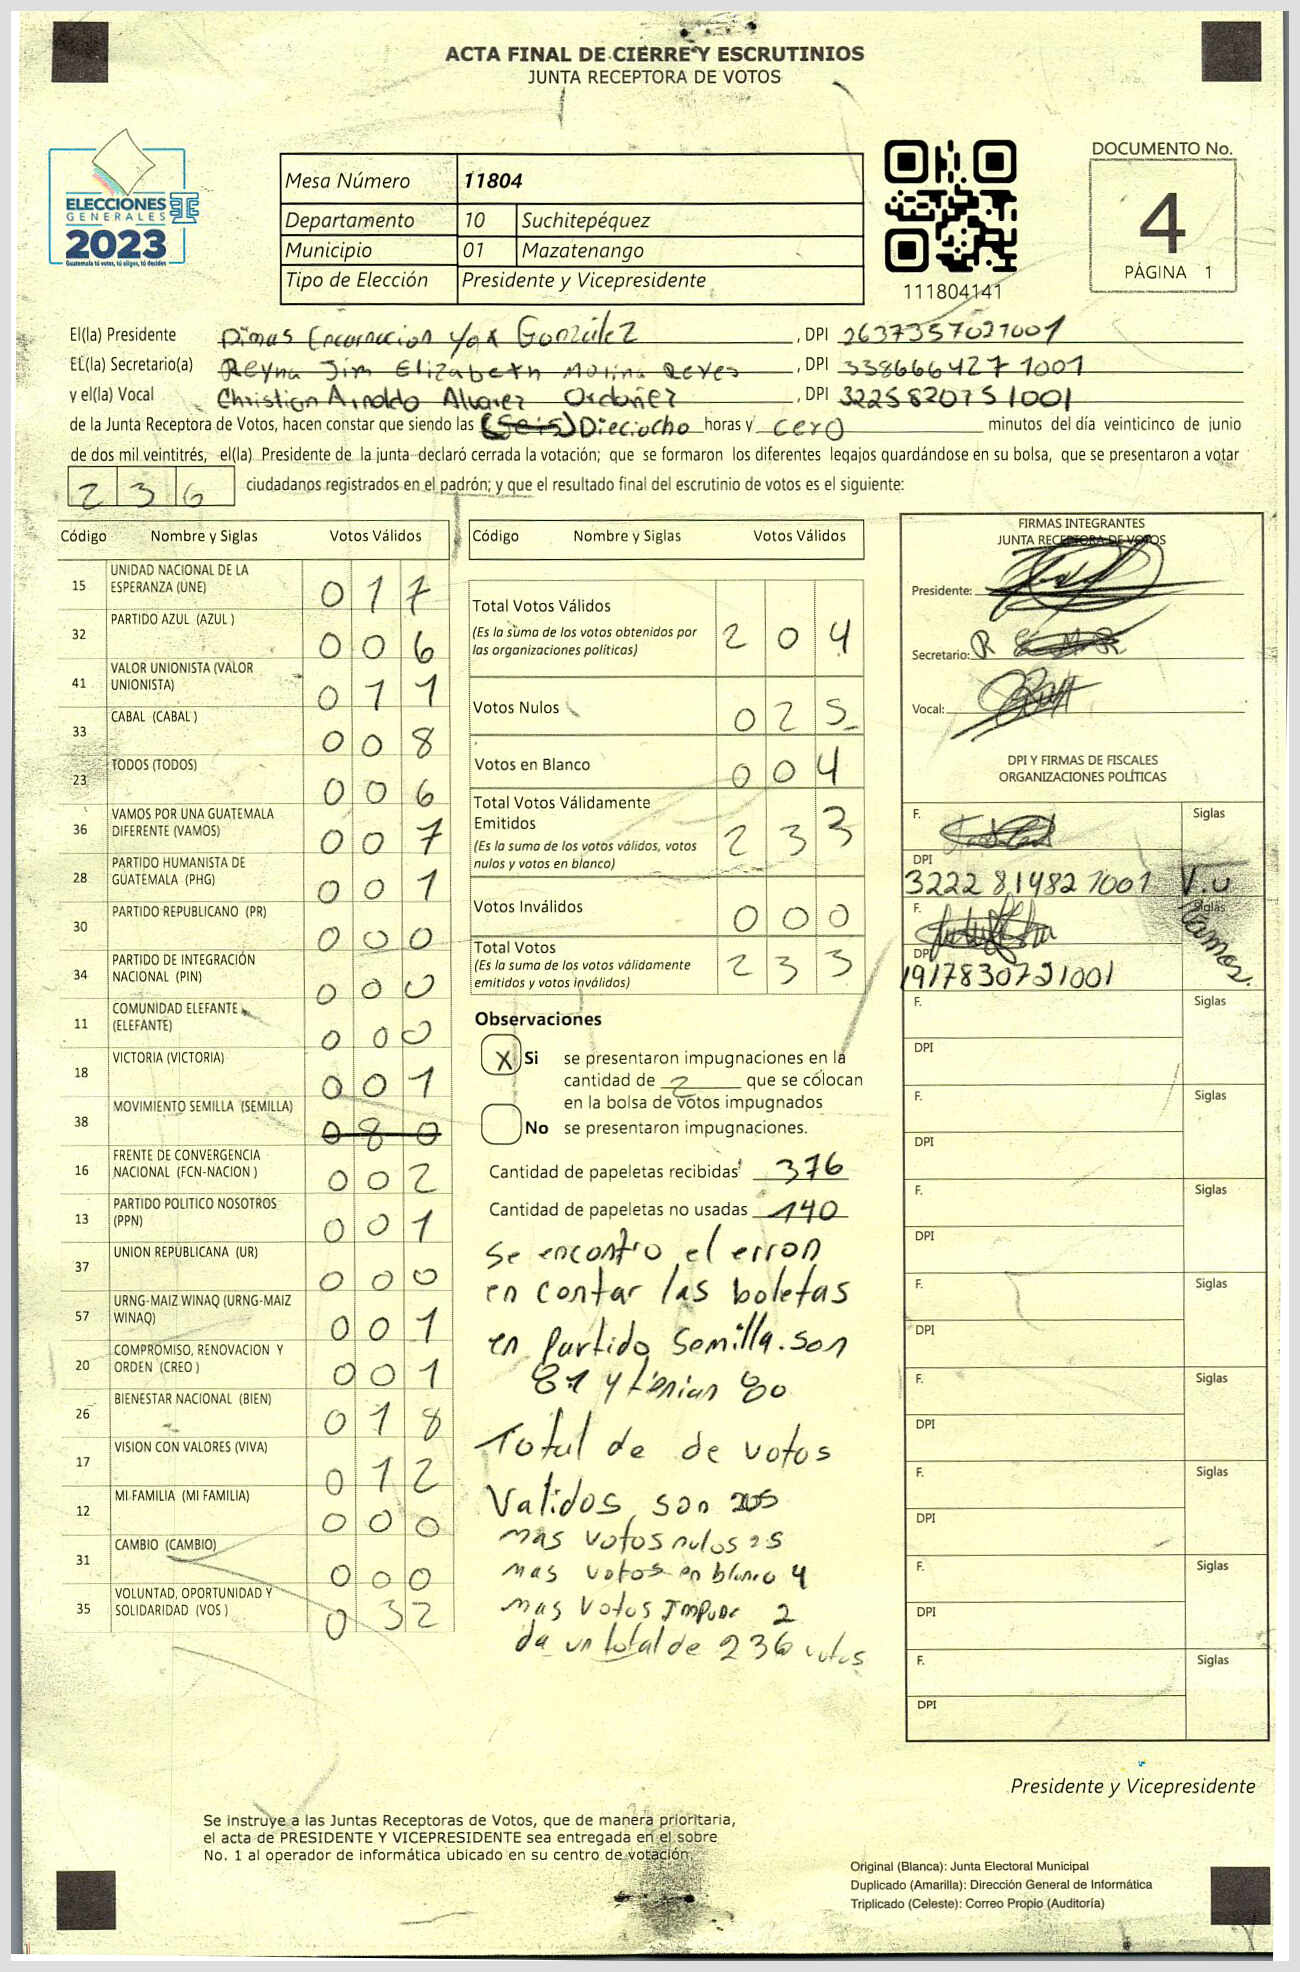 ACTA FINAL DE CIERRE Y ESCRUTINIOS
JUNTA RECEPTORA DE VOTOS
ELECCIONES
GENERALES
2023
Guatemala tú votas, tú eliges, tú decides
Mesa Número 11804
Departamento 10 Suchitepéquez
Municipio 01 Mazatenango
Tipo de Elección Presidente y Vicepresidente
111804141
DOCUMENTO No.
4
PÁGINA 1
El(la) Presidente Dimas Encarnacion Yax González, DPI 2637357021001
EL(la) Secretario(a) Reyna Jim Elizabeth Molina Reyes, DPI 338666427 1001
y el(la) Vocal Christian Arnoldo Alvarez Ordoñez, DPI 3225820751001
de la Junta Receptora de Votos, hacen constar que siendo las (Seis) Dieciocho horas y cero minutos del día veinticinco de junio
de dos mil veintitrés, el(la) Presidente de la junta declaró cerrada la votación; que se formaron los diferentes legajos guardándose en su bolsa, que se presentaron a votar
236 ciudadanos registrados en el padrón; y que el resultado final del escrutinio de votos es el siguiente:
Código Nombre y Siglas Votos Válidos
15 UNIDAD NACIONAL DE LA
ESPERANZA (UNE) 017
32 PARTIDO AZUL (AZUL ) 006
41 VALOR UNIONISTA (VALOR
UNIONISTA) 011
33 CABAL (CABAL ) 008
23 TODOS (TODOS) 006
36 VAMOS POR UNA GUATEMALA
DIFERENTE (VAMOS) 007
28 PARTIDO HUMANISTA DE
GUATEMALA (PHG) 001
30 PARTIDO REPUBLICANO (PR) 000
34 PARTIDO DE INTEGRACIÓN
NACIONAL (PIN) 000
11 COMUNIDAD ELEFANTE
(ELEFANTE) 000
18 VICTORIA (VICTORIA) 001
38 MOVIMIENTO SEMILLA (SEMILLA) 080
16 FRENTE DE CONVERGENCIA
NACIONAL (FCN-NACION ) 002
13 PARTIDO POLITICO NOSOTROS
(PPN) 001
37 UNION REPUBLICANA (UR) 000
57 URNG-MAIZ WINAQ (URNG-MAIZ
WINAQ) 001
20 COMPROMISO, RENOVACION Y
ORDEN (CREO ) 001
26 BIENESTAR NACIONAL (BIEN) 018
17 VISION CON VALORES (VIVA) 012
12 MI FAMILIA (MI FAMILIA) 000
31 CAMBIO (CAMBIO) 000
35 VOLUNTAD, OPORTUNIDAD Y
SOLIDARIDAD (VOS ) 032
Código Nombre y Siglas Votos Válidos
Total Votos Válidos
(Es la suma de los votos obtenidos por
las organizaciones políticas) 204
Votos Nulos 025
Votos en Blanco 004
Total Votos Válidamente
Emitidos
(Es la suma de los votos válidos, votos
nulos y votos en blanco) 233
Votos Inválidos 000
Total Votos
(Es la suma de los votos válidamente
emitidos y votos inválidos) 233
Observaciones
X Si se presentaron impugnaciones en la
cantidad de 2 que se colocan
en la bolsa de votos impugnados
No se presentaron impugnaciones.
Cantidad de papeletas recibidas 376
Cantidad de papeletas no usadas 140
Se encontro el erron
en contar las boletas
en Partido Semilla. son
81 y tenian 80
Total de de votos
Validos son 205
mas votos nulos 25
mas votos en blanco 4
mas votos Impug 2
da un total de 236 votos
FIRMAS INTEGRANTES
JUNTA RECEPTORA DE VOTOS
Presidente:
Secretario:
Vocal:
DPI Y FIRMAS DE FISCALES
ORGANIZACIONES POLÍTICAS
F. Siglas
DPI
3222 81482 1001 V.U
F. Siglas
Vamos.
DPI
1917830721001
F. Siglas
DPI
F. Siglas
DPI
F. Siglas
DPI
F. Siglas
DPI
F. Siglas
DPI
F. Siglas
DPI
F. Siglas
DPI
F. Siglas
DPI
Presidente y Vicepresidente
Se instruye a las Juntas Receptoras de Votos, que de manera prioritaria,
el acta de PRESIDENTE Y VICEPRESIDENTE sea entregada en el sobre
No. 1 al operador de informática ubicado en su centro de votación.
Original (Blanca): Junta Electoral Municipal
Duplicado (Amarilla): Dirección General de Informática
Triplicado (Celeste): Correo Propio (Auditoría)